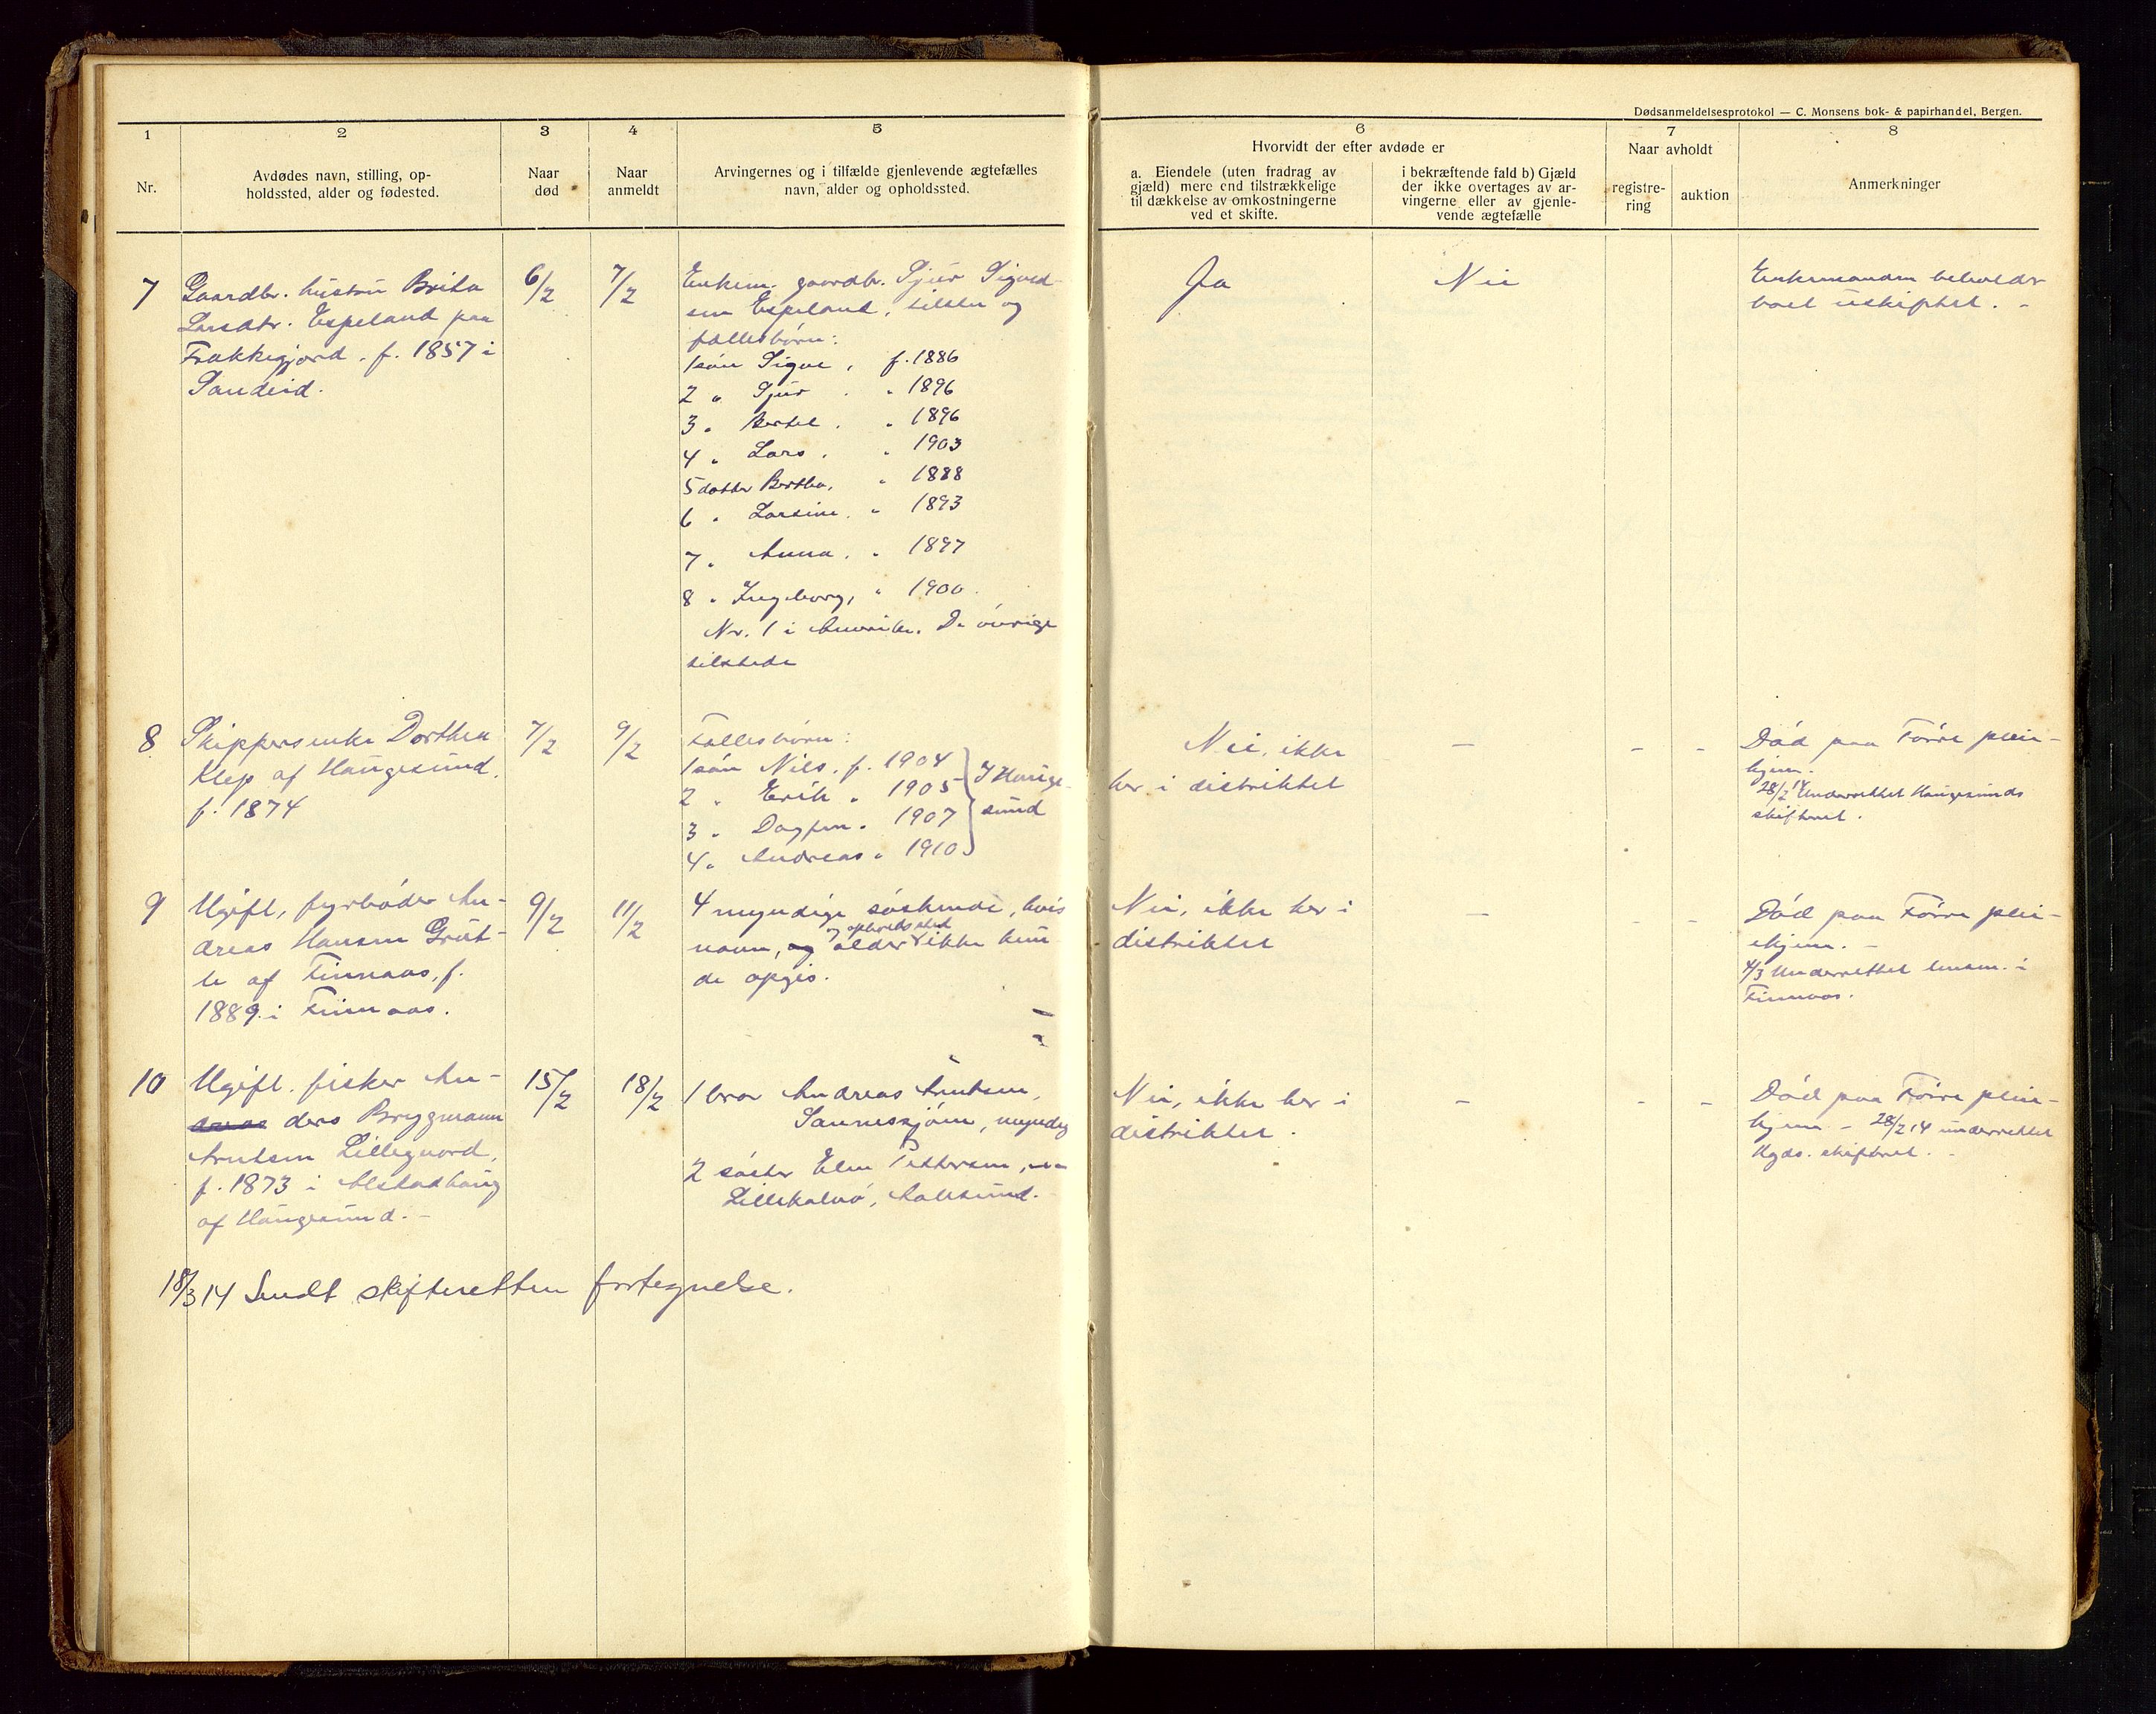 Dødsanmeldelsesprotokol — C. Monsens bok- & papirhandel, Bergen.
1
2
3
4
5
6
7
8
Nr.
Avdødes navn, stilling, op-
holdssted, alder og fødested.
Naar
død
Naar
anmeldt
Arvingernes og i tilfælde gjenlevende ægtefælles
navn, alder og opholdssted.
Hvorvidt der efter avdøde er
a. Eiendele (uten fradrag av
gjæld) mere end tilstrækkelige
til dækkelse av omkostningerne
ved et skifte.
i bekræftende fald b) Gjæld
der ikke overtages av ar-
vingerne eller av gjenle-
vende ægtefælle
Naar avholdt
registre-
ring
auktion
Anmerkninger
7
Gaardbr. hustru Brita
Larsdtr. Espeland paa
Frakkagjerd. f. 1857 i
Sandeid.
6/2
7/2
Enkem. gaardbr. Sjur Sigvald-
sen Espeland, tilstede og
fællesbørn:
1 søn Sigve, f. 1886
2 " Sjur " 1896
3 " Bertel " 1896
4 " Lars, " 1903
5 datter Bertha, " 1888
6 " Larsine, " 1893
7 " Anna, " 1897
8 " Ingeborg, " 1900.
Nr. 1 i Amerika. De øvrige
tilstede
Ja
Nei
Enkemanden beholdr
boet uskiftet. -
8
Skippersenke Dorthea
Klep af Haugesund.
f. 1874
7/2
9/2
Fællesbørn:
1 søn Nils, f. 1904
2 " Erik " 1905
3 " Dagfin " 1907
4 " Andreas " 1910
I Hauge-
sund
Nei, ikke
her i distriktet
-
-
-
Død paa Førre plei-
hjem.
28/2 14 Underrettet Haugesunds
skifteret.
9
Ugift, fyrbøder An-
dreas Hansen Grut-
le af Finnaas, f.
1889 i Finnaas.
9/2
11/2
4 myndige søskende, hvis
navn, og alder og opholdssted ikke kun
de opgis.
Nei, ikke her i
distriktet
-
-
-
Død paa Førre plei-
ehjem. -
4/3 Underrettet lensm. i
Finnaas.
10
Ugift. fisker An-
dreas ders Brygmann
Arntsen Lillegaard,
f. 1873 i Alstadhaug
af Haugesund. -
15/2
18/2
1 bror Andreas Arntsen,
Sannessjøen, myndig
2 søster Elen Pettersen,
Lillekalvø, Aalesund.
Nei, ikke her i
distriktet.
-
-
-
Død paa Førre plei-
hjem - 28/2 14 underrettet
Hgds. skifteret. -
18/3 14 Sendt skifteretten fortegnelse.